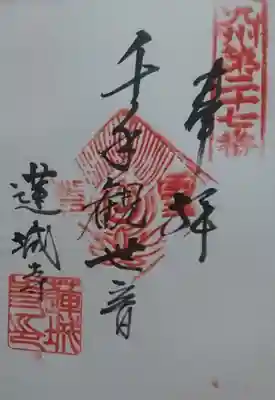 九州第二十七番
奉拝
千手観世音
蓮城寺
蓮城
寺印